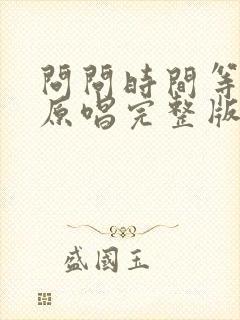 問問時間等
原唱完整版
盛國玉